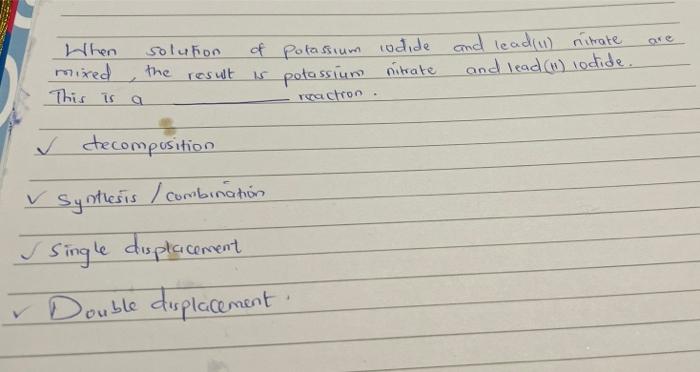 When solution of potassium iodide and lead(II) nitrate are
mixed, the result is potassium nitrate and lead(II) iodide.
This is a __________ reaction.
✓ decomposition
✓ Synthesis / combination
✓ Single displacement
✓ Double displacement.